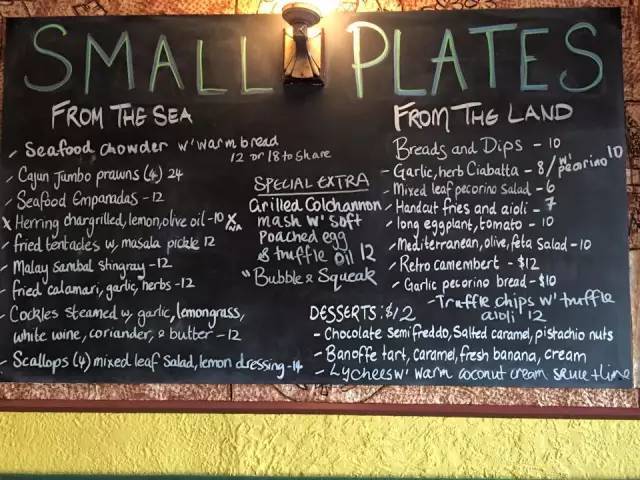 SMALL PLATES
FROM THE SEA
Seafood chowder w' warm bread
12 or 18 to share
Cajun Jumbo prawns (4) 24
Seafood Empanadas - 12
x Herring chargrilled, lemon, olive oil - 10 x N/A
fried tentacles w, masala pickle 12
Malay Sambal stingray - 12
fried calamari, garlic, herbs - 12
Cockles steamed w, garlic, lemongrass,
white wine, coriander, & butter - 12
Scallops (4) mixed leaf salad, lemon dressing - 14
SPECIAL EXTRA
Grilled Colchannon
mash w' soft
Poached egg
& truffle oil 12
"Bubble & Squeak
FROM THE LAND
Breads and Dips - 10
Garlic, herb Ciabatta - 8 / w' pecorino 10
Mixed leaf pecorino Salad - 6
Handcut fries and aioli - 7
long eggplant, tomato - 10
Mediterranean, olive, feta Salad - 10
Retro camembert - $12
Garlic pecorino bread - $10
- Truffle chips w' truffle
aioli 12
DESSERTS: $12
- Chocolate semifreddo, Salted caramel, pistachio nuts
- Banoffe tart, caramel, fresh banana, cream
- Lychees w' warm coconut cream sauce + lime